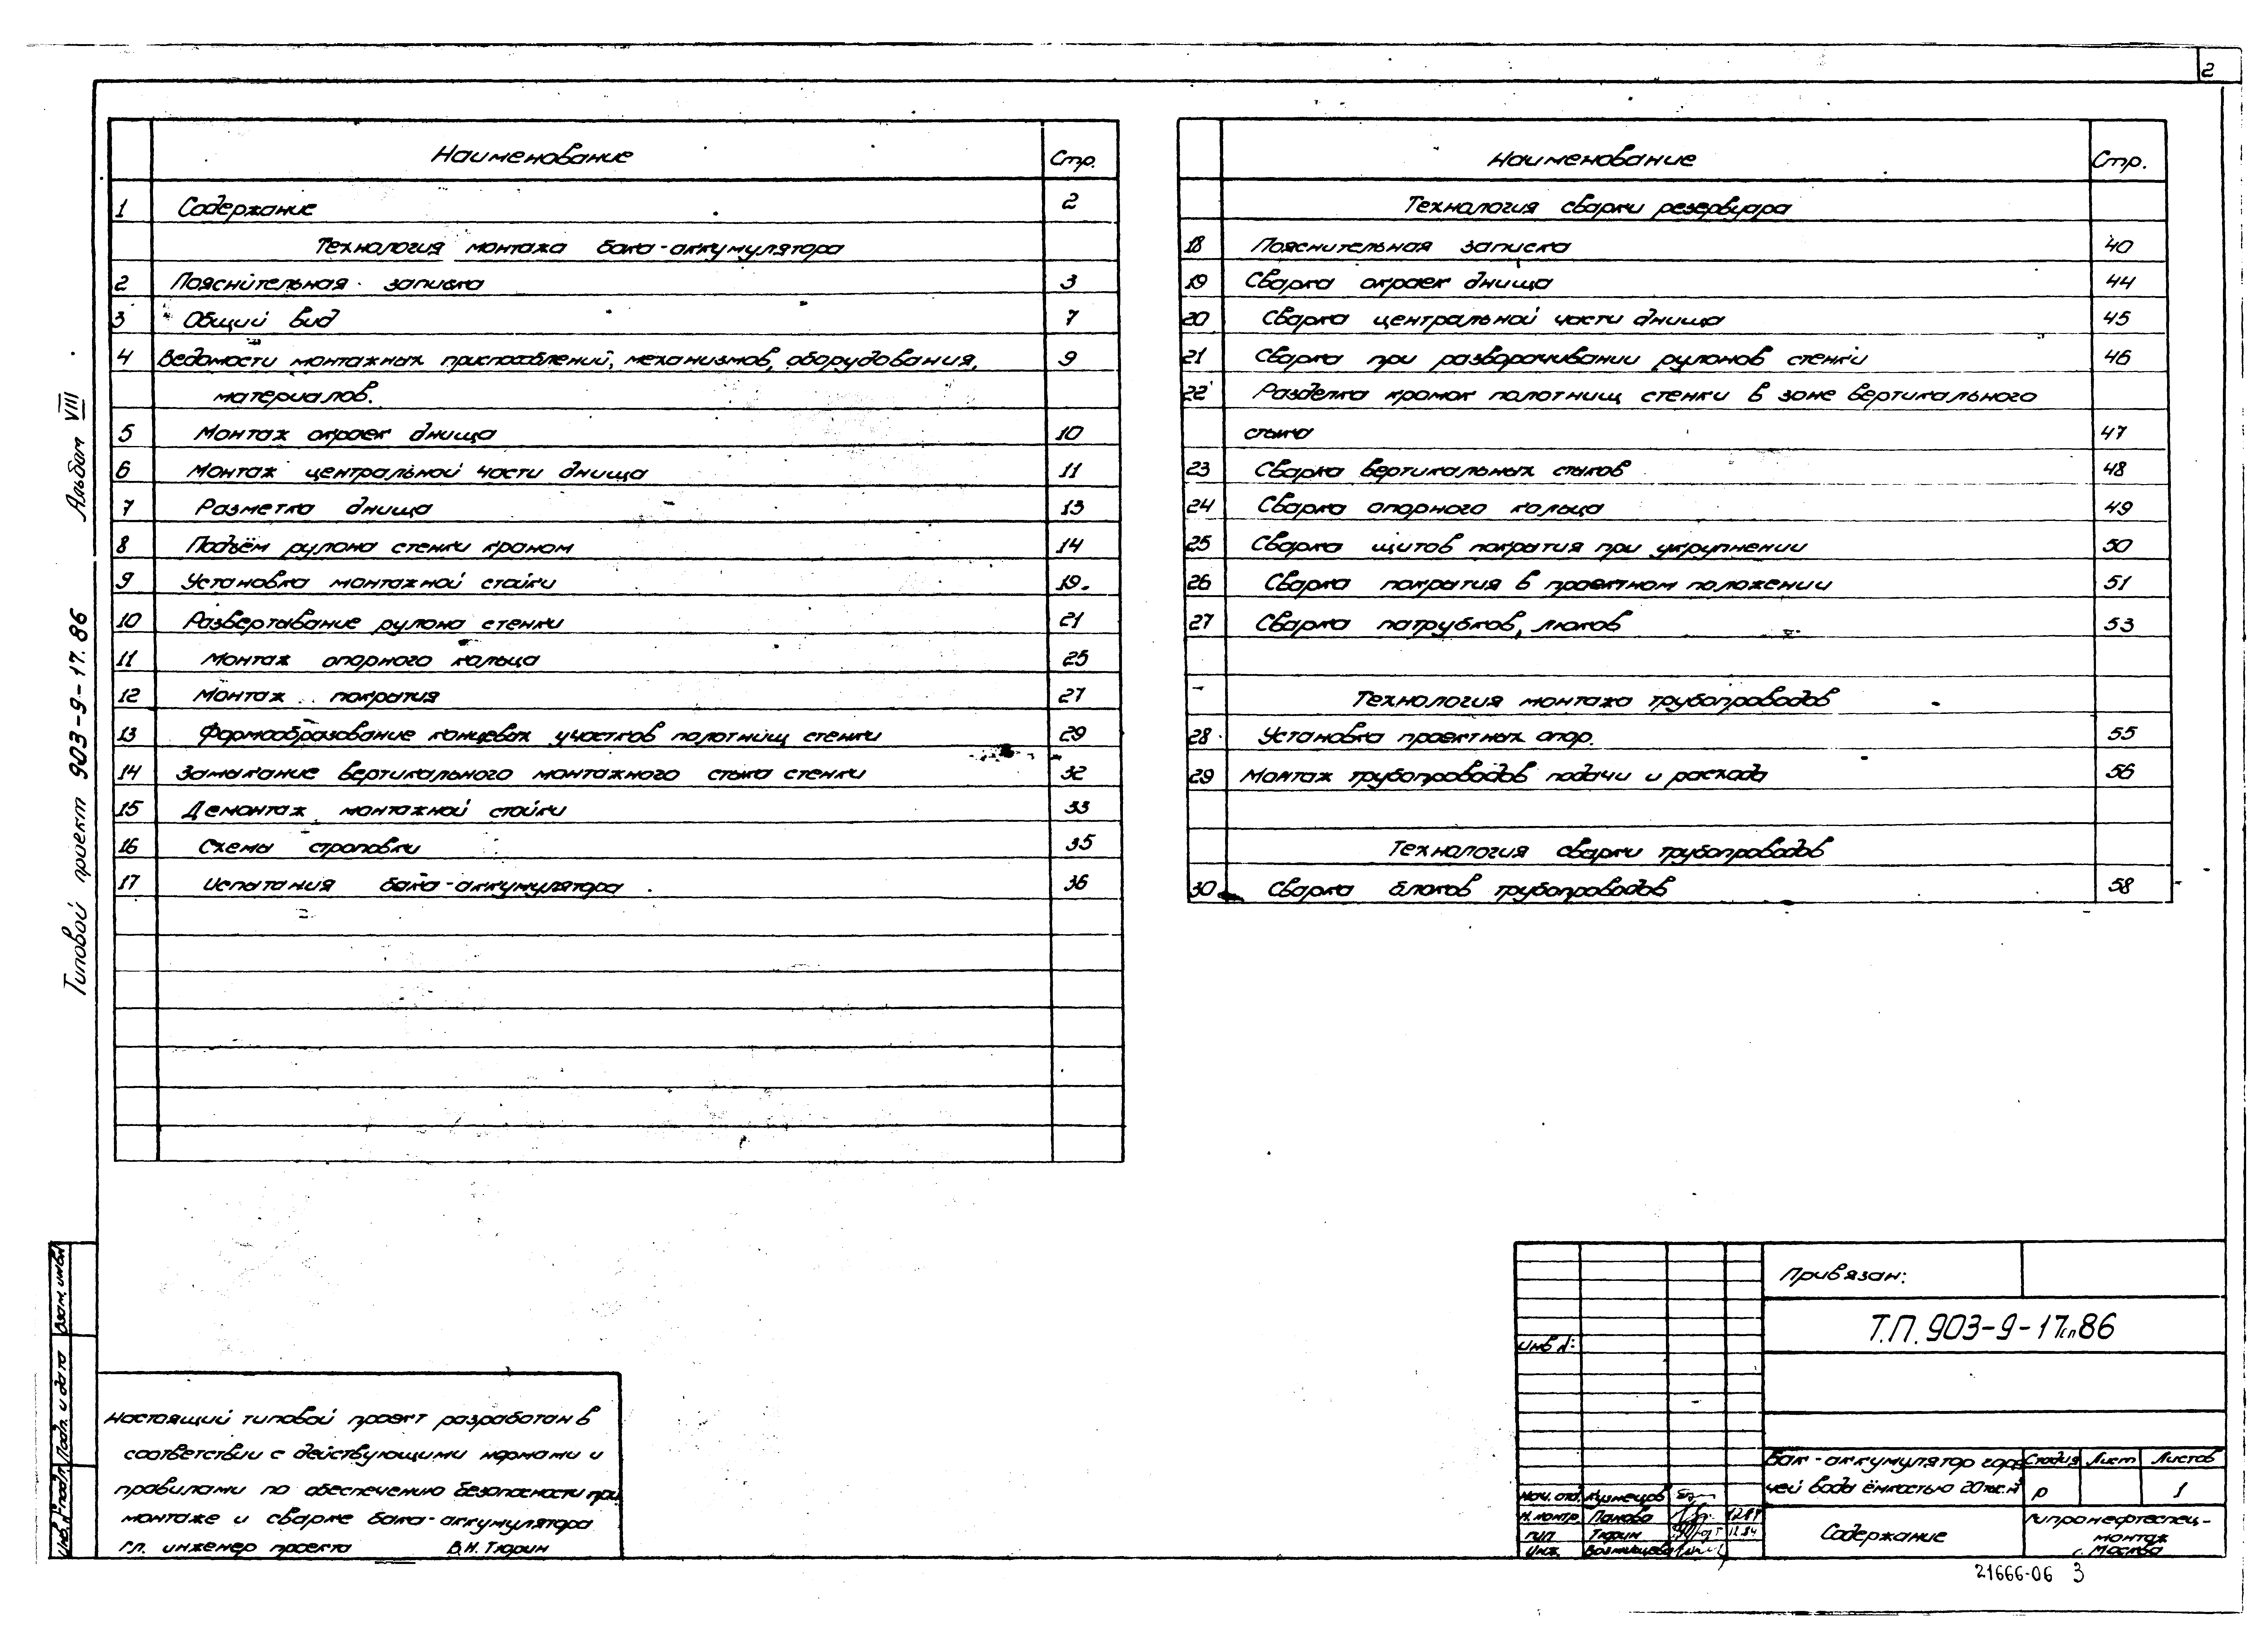 2
Наименование Стр.
1 Содержание 2
Технология монтажа бака-аккумулятора
2 Пояснительная записка 3
3 Общий вид 7
4 Ведомости монтажных приспособлений, механизмов, оборудования, 9
материалов.
5 Монтаж окраек днища 10
6 Монтаж центральной части днища 11
7 Разметка днища 13
8 Подъём рулона стенки краном 14
9 Установка монтажной стойки 19.
10 Развертывание рулона стенки 21
11 Монтаж опорного кольца 25
12 Монтаж покрытия 27
13 Формообразование концевых участков полотнищ стенки 29
14 Замыкание вертикального монтажного стыка стенки 32
15 Демонтаж монтажной стойки 33
16 Схемы строповки 35
17 Испытания бака-аккумулятора 36
Наименование Стр.
Технология сварки резервуара
18 Пояснительная записка 40
19 Сварка окраек днища 44
20 Сварка центральной части днища 45
21 Сварка при разворачивании рулонов стенки 46
22 Разделка кромок полотнищ стенки в зоне вертикального
стыка 47
23 Сварка вертикальных стыков 48
24 Сварка опорного кольца 49
25 Сварка щитов покрытия при укрупнении 50
26 Сварка покрытия в проектном положении 51
27 Сварка патрубков, люков 53
Технология монтажа трубопроводов
28 Установка проектных опор. 55
29 Монтаж трубопроводов подачи и расхода 56
Технология сварки трубопроводов
30 Сварка блоков трубопроводов 58
Типовой проект 903-9-17.86 Альбом VIII
Инв. № подл. Подп. и дата Взам. инв. №
Настоящий типовой проект разработан в
соответствии с действующими нормами и
правилами по обеспечению безопасности при
монтаже и сварке бака-аккумулятора
Гл. инженер проекта В.Н. Тюрин
Привязан:
Инв №:
Т.П. 903-9-17сп86
Бак-аккумулятор горя-
чей воды ёмкостью 20 тыс. м³
Стадия Лист Листов
Р 1
Нач. отд. Кузнецов
Н. контр. Панова 12.84
ГИП Тюрин 12.84
Инж.
Содержание
Гипронефтеспец-
монтаж
г. Москва
21666-06 3